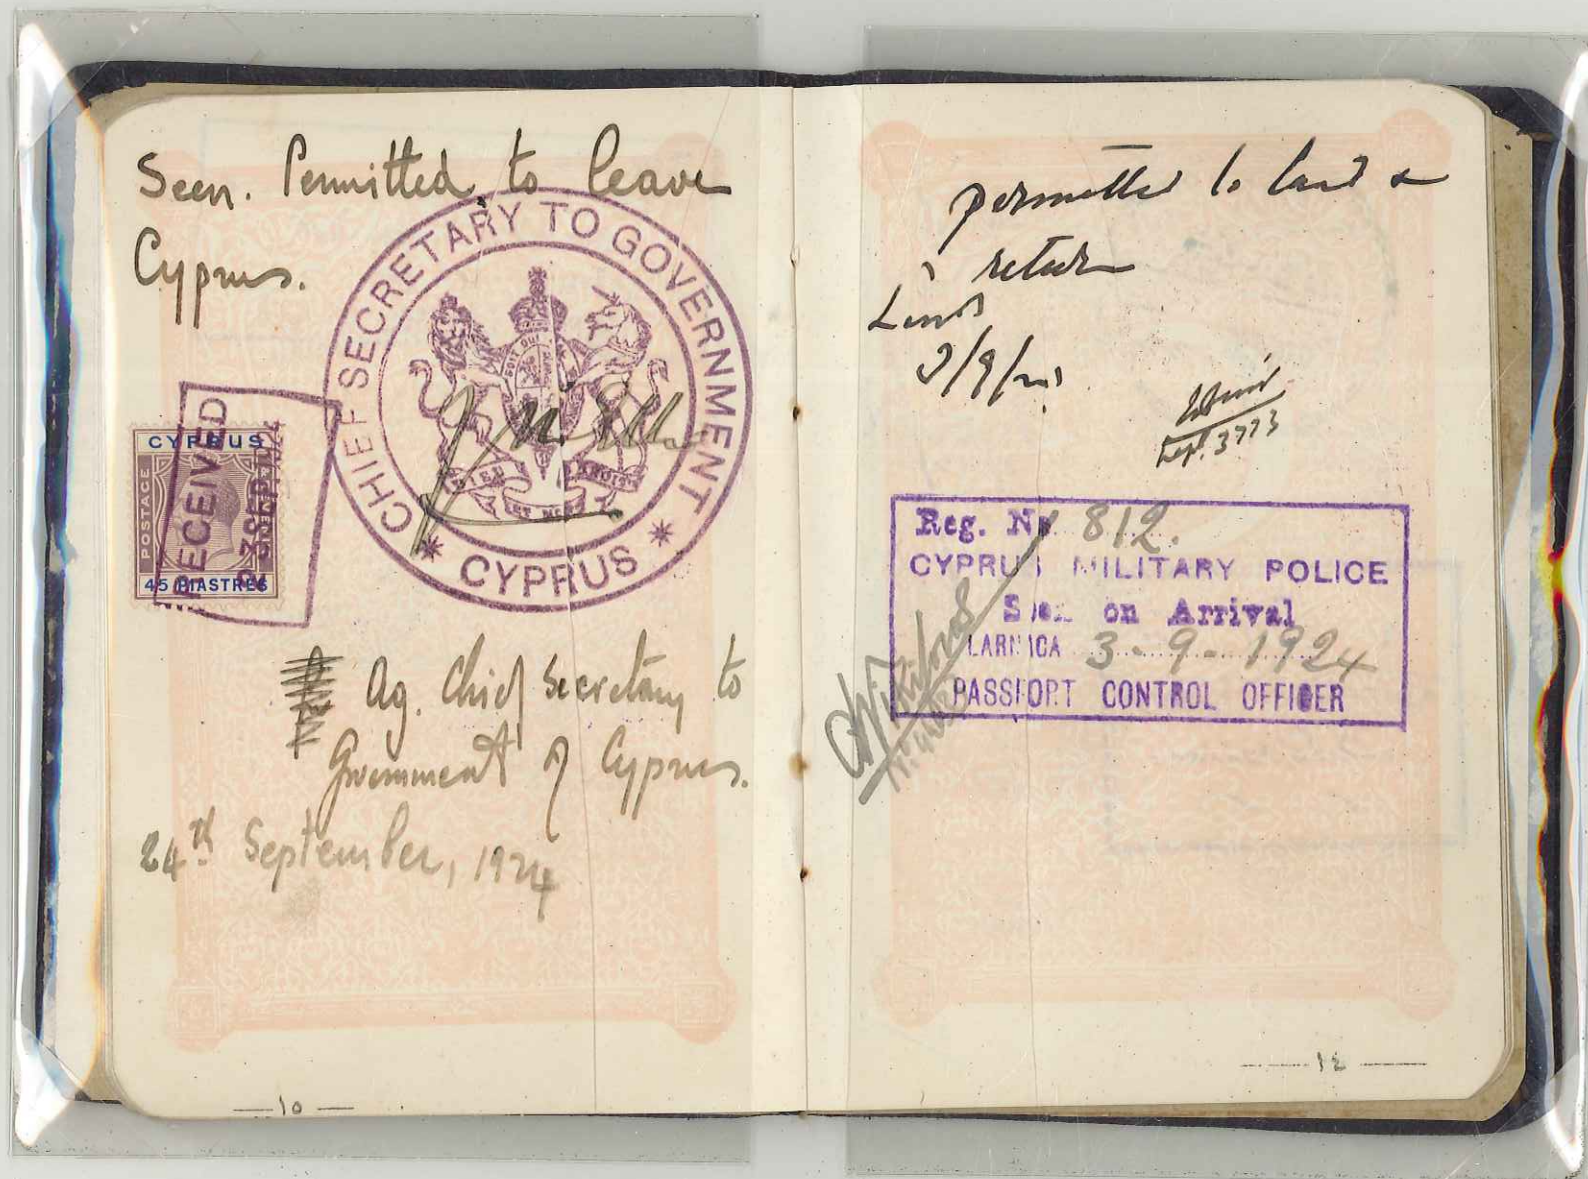 Seen. Permitted to leave
Cyprus.
CHIEF SECRETARY TO GOVERNMENT
* CYPRUS *
DIEU ET MON DROIT
CYPRUS
POSTAGE
45 PIASTRES
RECEIVED
Ag. Chief Secretary to
Government of Cyprus.
24th September, 1924
١٥
permitted to land &
return
Reg. No 812.
CYPRUS MILITARY POLICE
Seen on Arrival
LARNACA 3-9-1924
PASSPORT CONTROL OFFICER
١٤